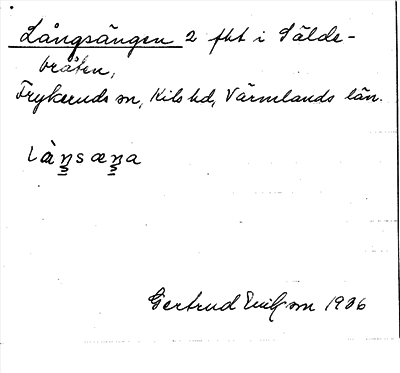 Långsängen 2 fht i Sälde-
bråten,
Frykeruds sn, Kils hd, Värmlands län.
Gertrud Ericsson 1936